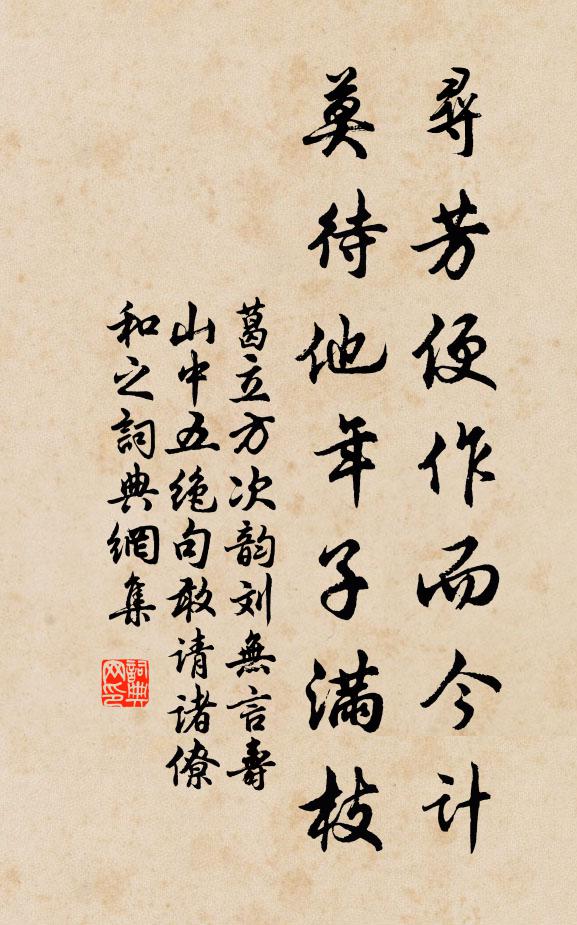 尋芳便作而今计
莫待他年子滿枝
葛立方次韵刘無言壽
山中五绝句敢请诸僚
和之詞典網集
詞典网印